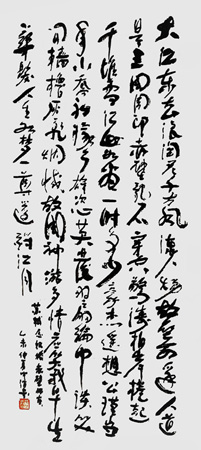 大江东去浪淘尽千古风流人物故垒西边人道
是三国周郎赤壁乱石穿空惊涛拍岸卷起
千堆雪江山如画一时多少豪杰遥想公瑾当
年小乔初嫁了雄姿英发羽扇纶巾谈笑
间樯橹灰飞烟灭故国神游多情应笑我早生
华发人生如梦一尊还酹江月
苏轼念奴娇赤壁怀古
乙未仲夏